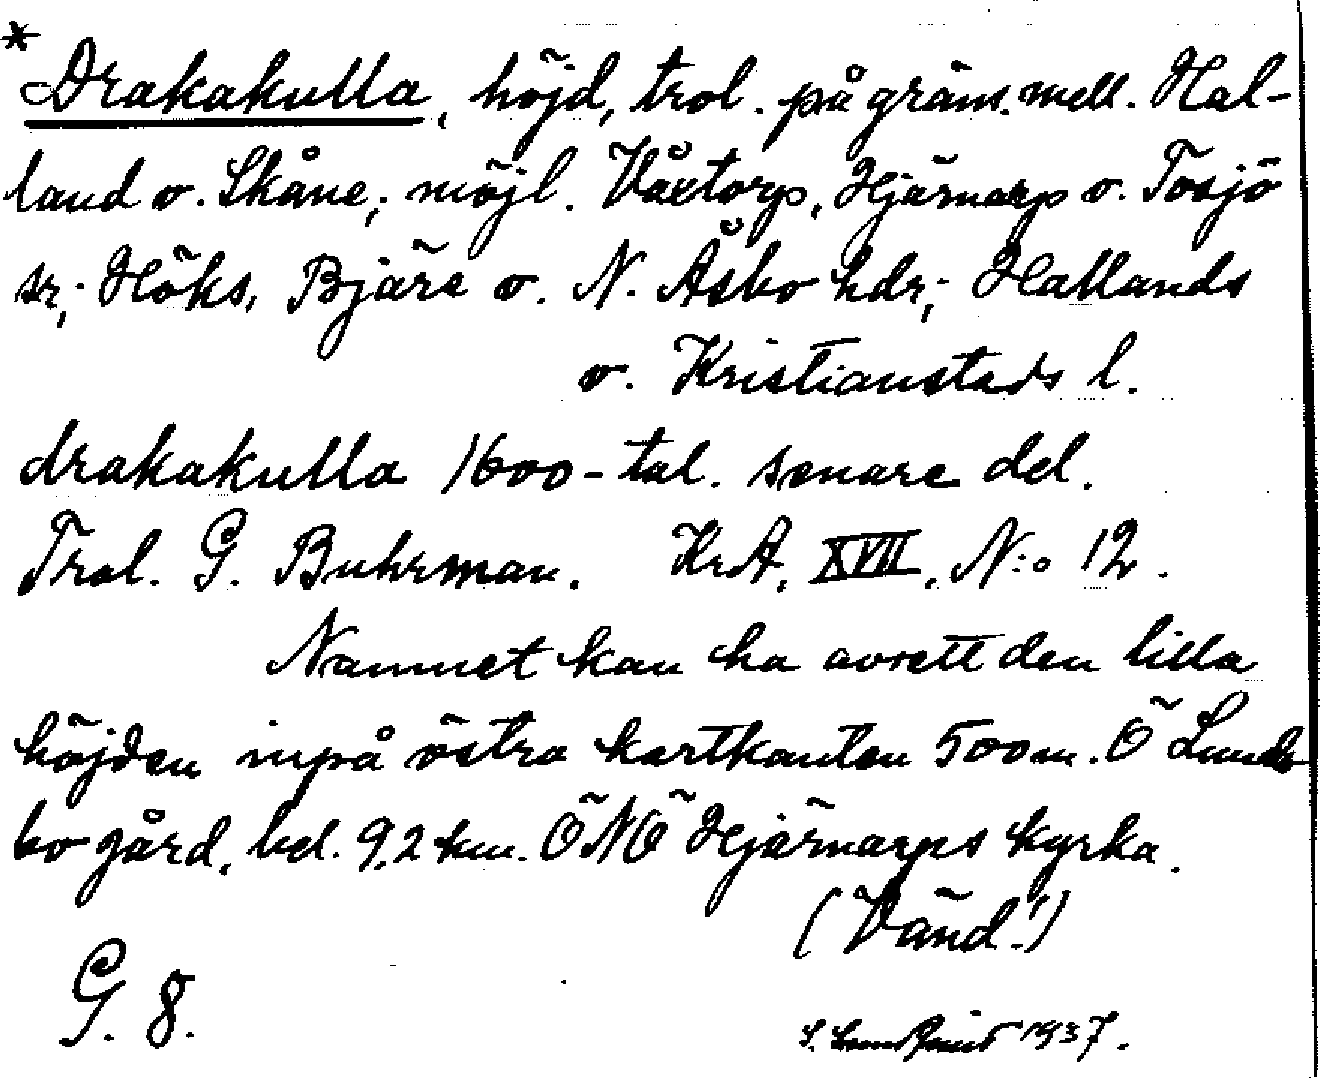 *Drakakulla, höjd, trol. på gräns. mell. Hal-
land o. Skåne; möjl. Våxtorp, Hjärnarp o. Tosjö
sr; Höks, Bjäre o. N. Åsbo hdr; Hallands
o. Kristianstads l.
drakakulla 1600-tal. senare del.
Trol. G. Buhrman. KrA. XVII, N:o 12.
Namnet kan ha avsett den lilla
höjden inpå östra kartkanten 500m. Ö Lunds
bo gård, bel. 9,2 km. ÖNÖ Hjärnarps kyrka.
(Vänd!)
G. 8.
1937.